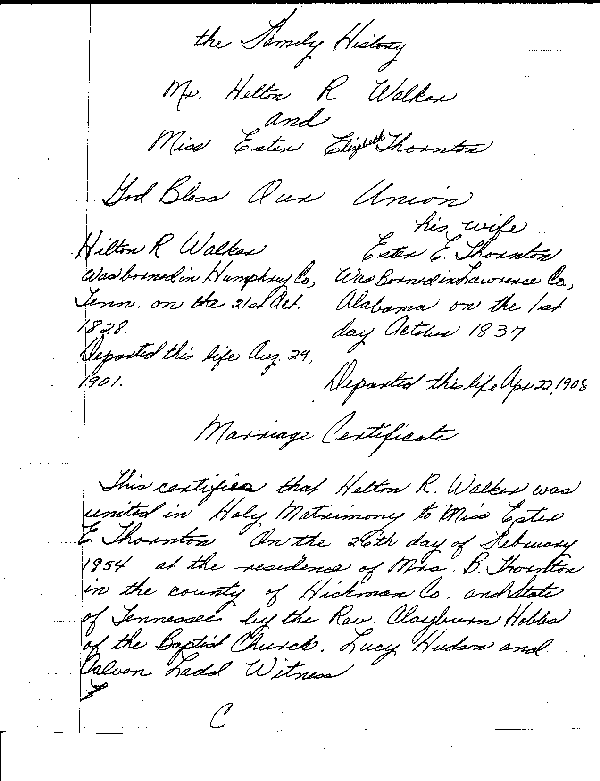 the Family History
Mr. Helton R Walker
and
Miss Ester Elizabeth Thornton
God Bless Our Union
his wife
Hilton R Walker
was borned in Humphrey Co,
Tenn. on the 21st Oct.
1828.
Departed this life Aug. 29,
1901.
Ester E. Thornton
Was Borned in Lawrence Co,
Alabama on the 1st
day October 1837
Departed this life Apr 22, 1908
Marriage Certificate
This certifies that Helton R. Walker was
united in Holy Matrimony to Miss Ester
E Thornton On the 26th day of February
1954 at the residence of Mrs. B. Thornton
in the county of Hickman Co. and State
of Tennessee by the Rev. Clayburn Hobbs
of the Baptist Church. Lucy Hudson and
Calvon Ladd Witness
C